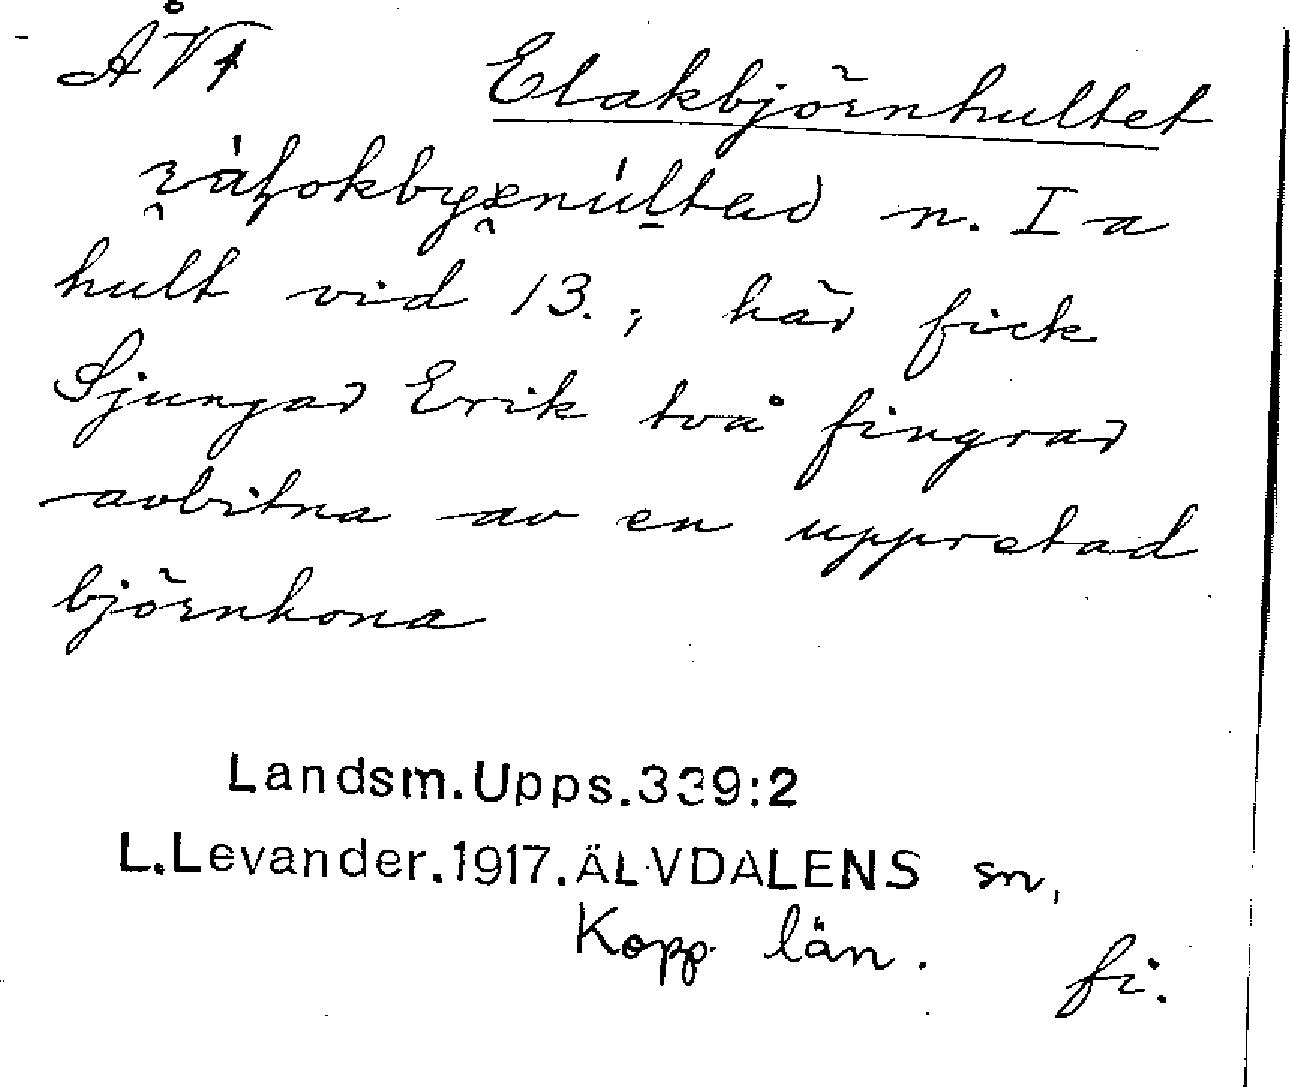 ÅV1 Elakbjörnhultet
n. I a
hult vid 13.; här fick
Sjungar Erik två fingrar
avbitna av en uppretad
björnhona
Landsm.Upps.339:2
L.Levander.1917.ÄLVDALENS sn,
Kopp. län. fi.